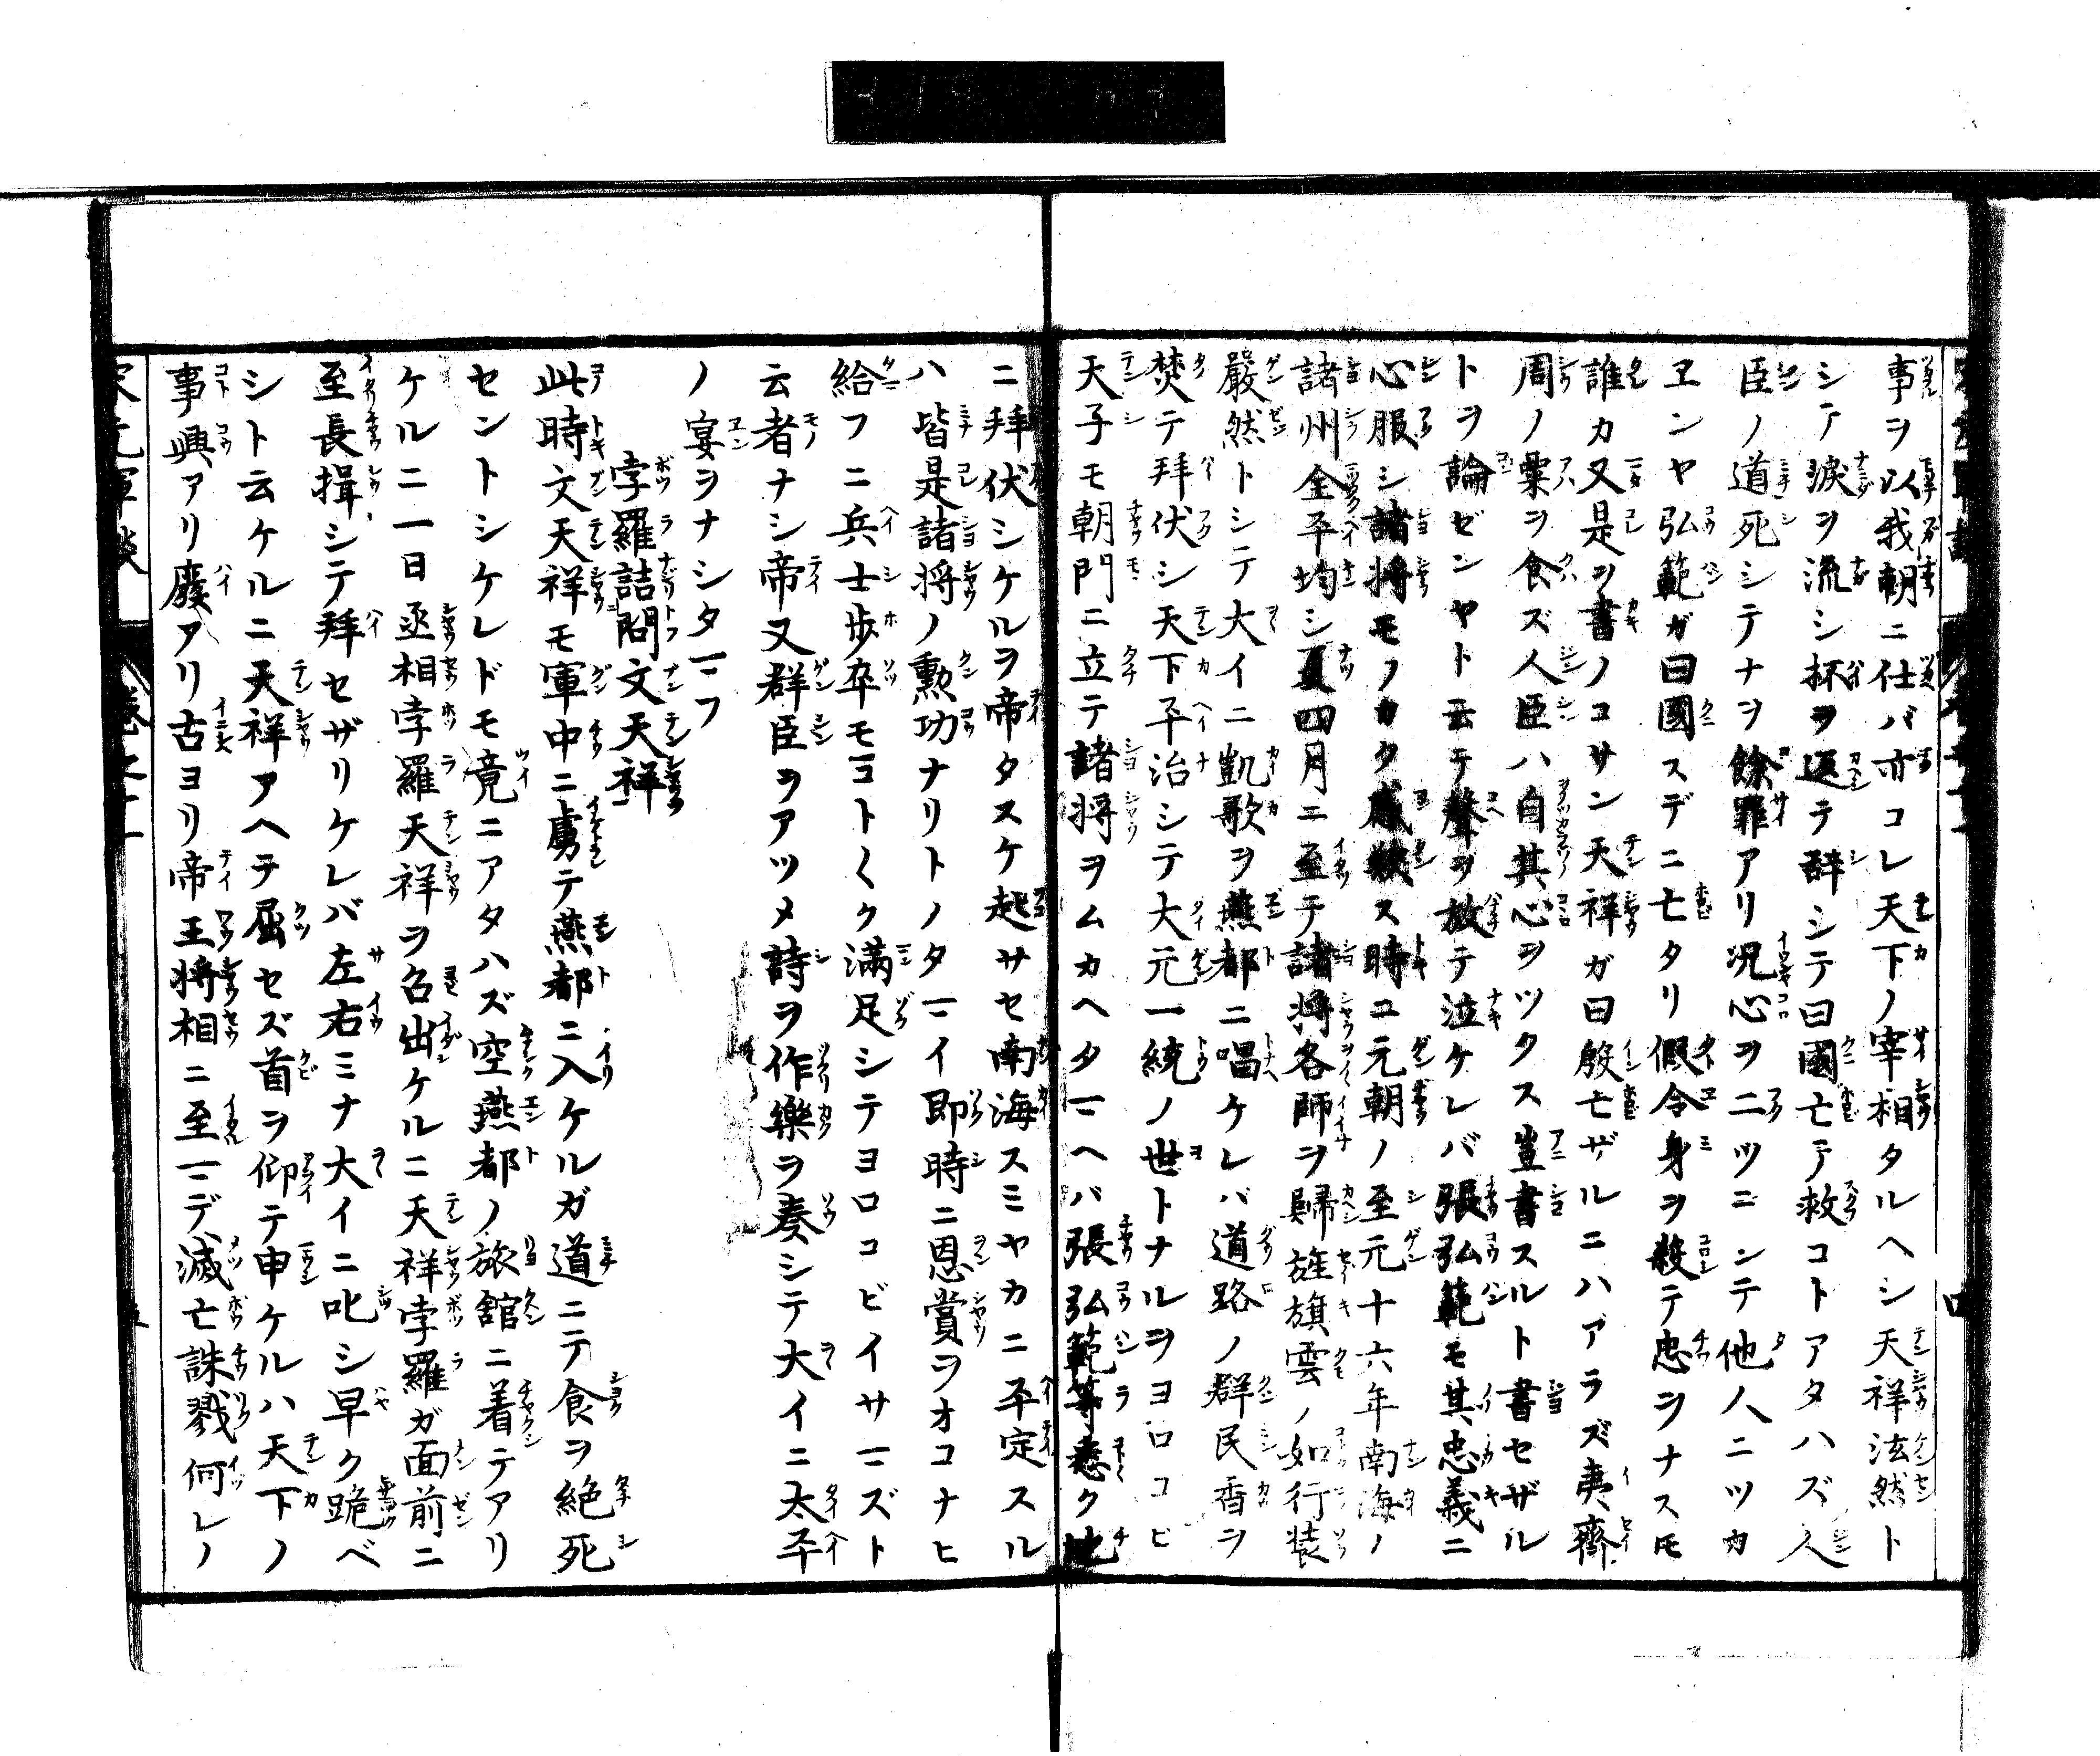 事ヲ以我朝ニ仕バ亦コレ天下ノ宰相タルヘシ天祥泫然ト
シテ淚ヲ流シ抔ヲ返テ辞シテ曰國亡テ救コトアタハズ人
臣ノ道死シテナヲ餘罪アリ况心ヲニツニシテ他人ニツカ
ヱンヤ弘範ガ曰國スデニ亡タリ假令身ヲ殺テ忠ヲナスモ
誰カ又是ヲ書ノコサン天祥ガ曰殷亡ザルニハアラズ夷齊
周ノ粟ヲ食ズ人臣ハ自其心ヲツクス豈書スルト書セザル
トヲ論ゼンヤト云テ聲ヲ放テ泣ケレバ張弘範モ其忠義ニ
心服シ諸將モノカタ感歎ス時ニ元朝ノ至元十六年南海ノ
諸州全平均シ夏四月ニ至テ諸將各師ヲ歸旌旗雲ノ如行装
嚴然トシテ大イニ凱歌ヲ燕都ニ唱ケレバ道路ノ群民香ヲ
焚テ拜伏シ天下平治シテ大元一統ノ世トナルヲヨロコビ
天子モ朝門ニ立テ諸将ヲムカヘタマヘバ張弘範等悉ク地
ニ拜伏シケルヲ帝タスケ起サセ南海スミヤカニ平定スル
ハ皆是諸将ノ勲功ナリトノタマイ即時ニ恩賞ヲオコナヒ
給フニ兵士歩卒モコト〱ク滿足シテヨロコビイサマズト
云者ナシ帝又群臣ヲアツメ詩ヲ作樂ヲ奏シテ大イニ太平
ノ宴ヲナシタマフ
孛羅詰問文天祥
此時文天祥モ軍中ニ虜テ燕都ニ入ケルガ道ニテ食ヲ絶死
セントシケレドモ竟ニアタハズ空燕都ノ旅舘ニ着テアリ
ケルニ一日丞相孛羅天祥ヲ召出ケルニ天祥孛羅ガ面前ニ
至長揖シテ拜セザリケレバ左右ミナ大イニ叱シ早ク跪ベ
シト云ケルニ天祥アヘテ屈セズ首ヲ仰テ申ケルハ天下ノ
事興アリ廢アリ古ヨリ帝王將相ニ至マデ滅亡誅戮何レノ
宋元軍談